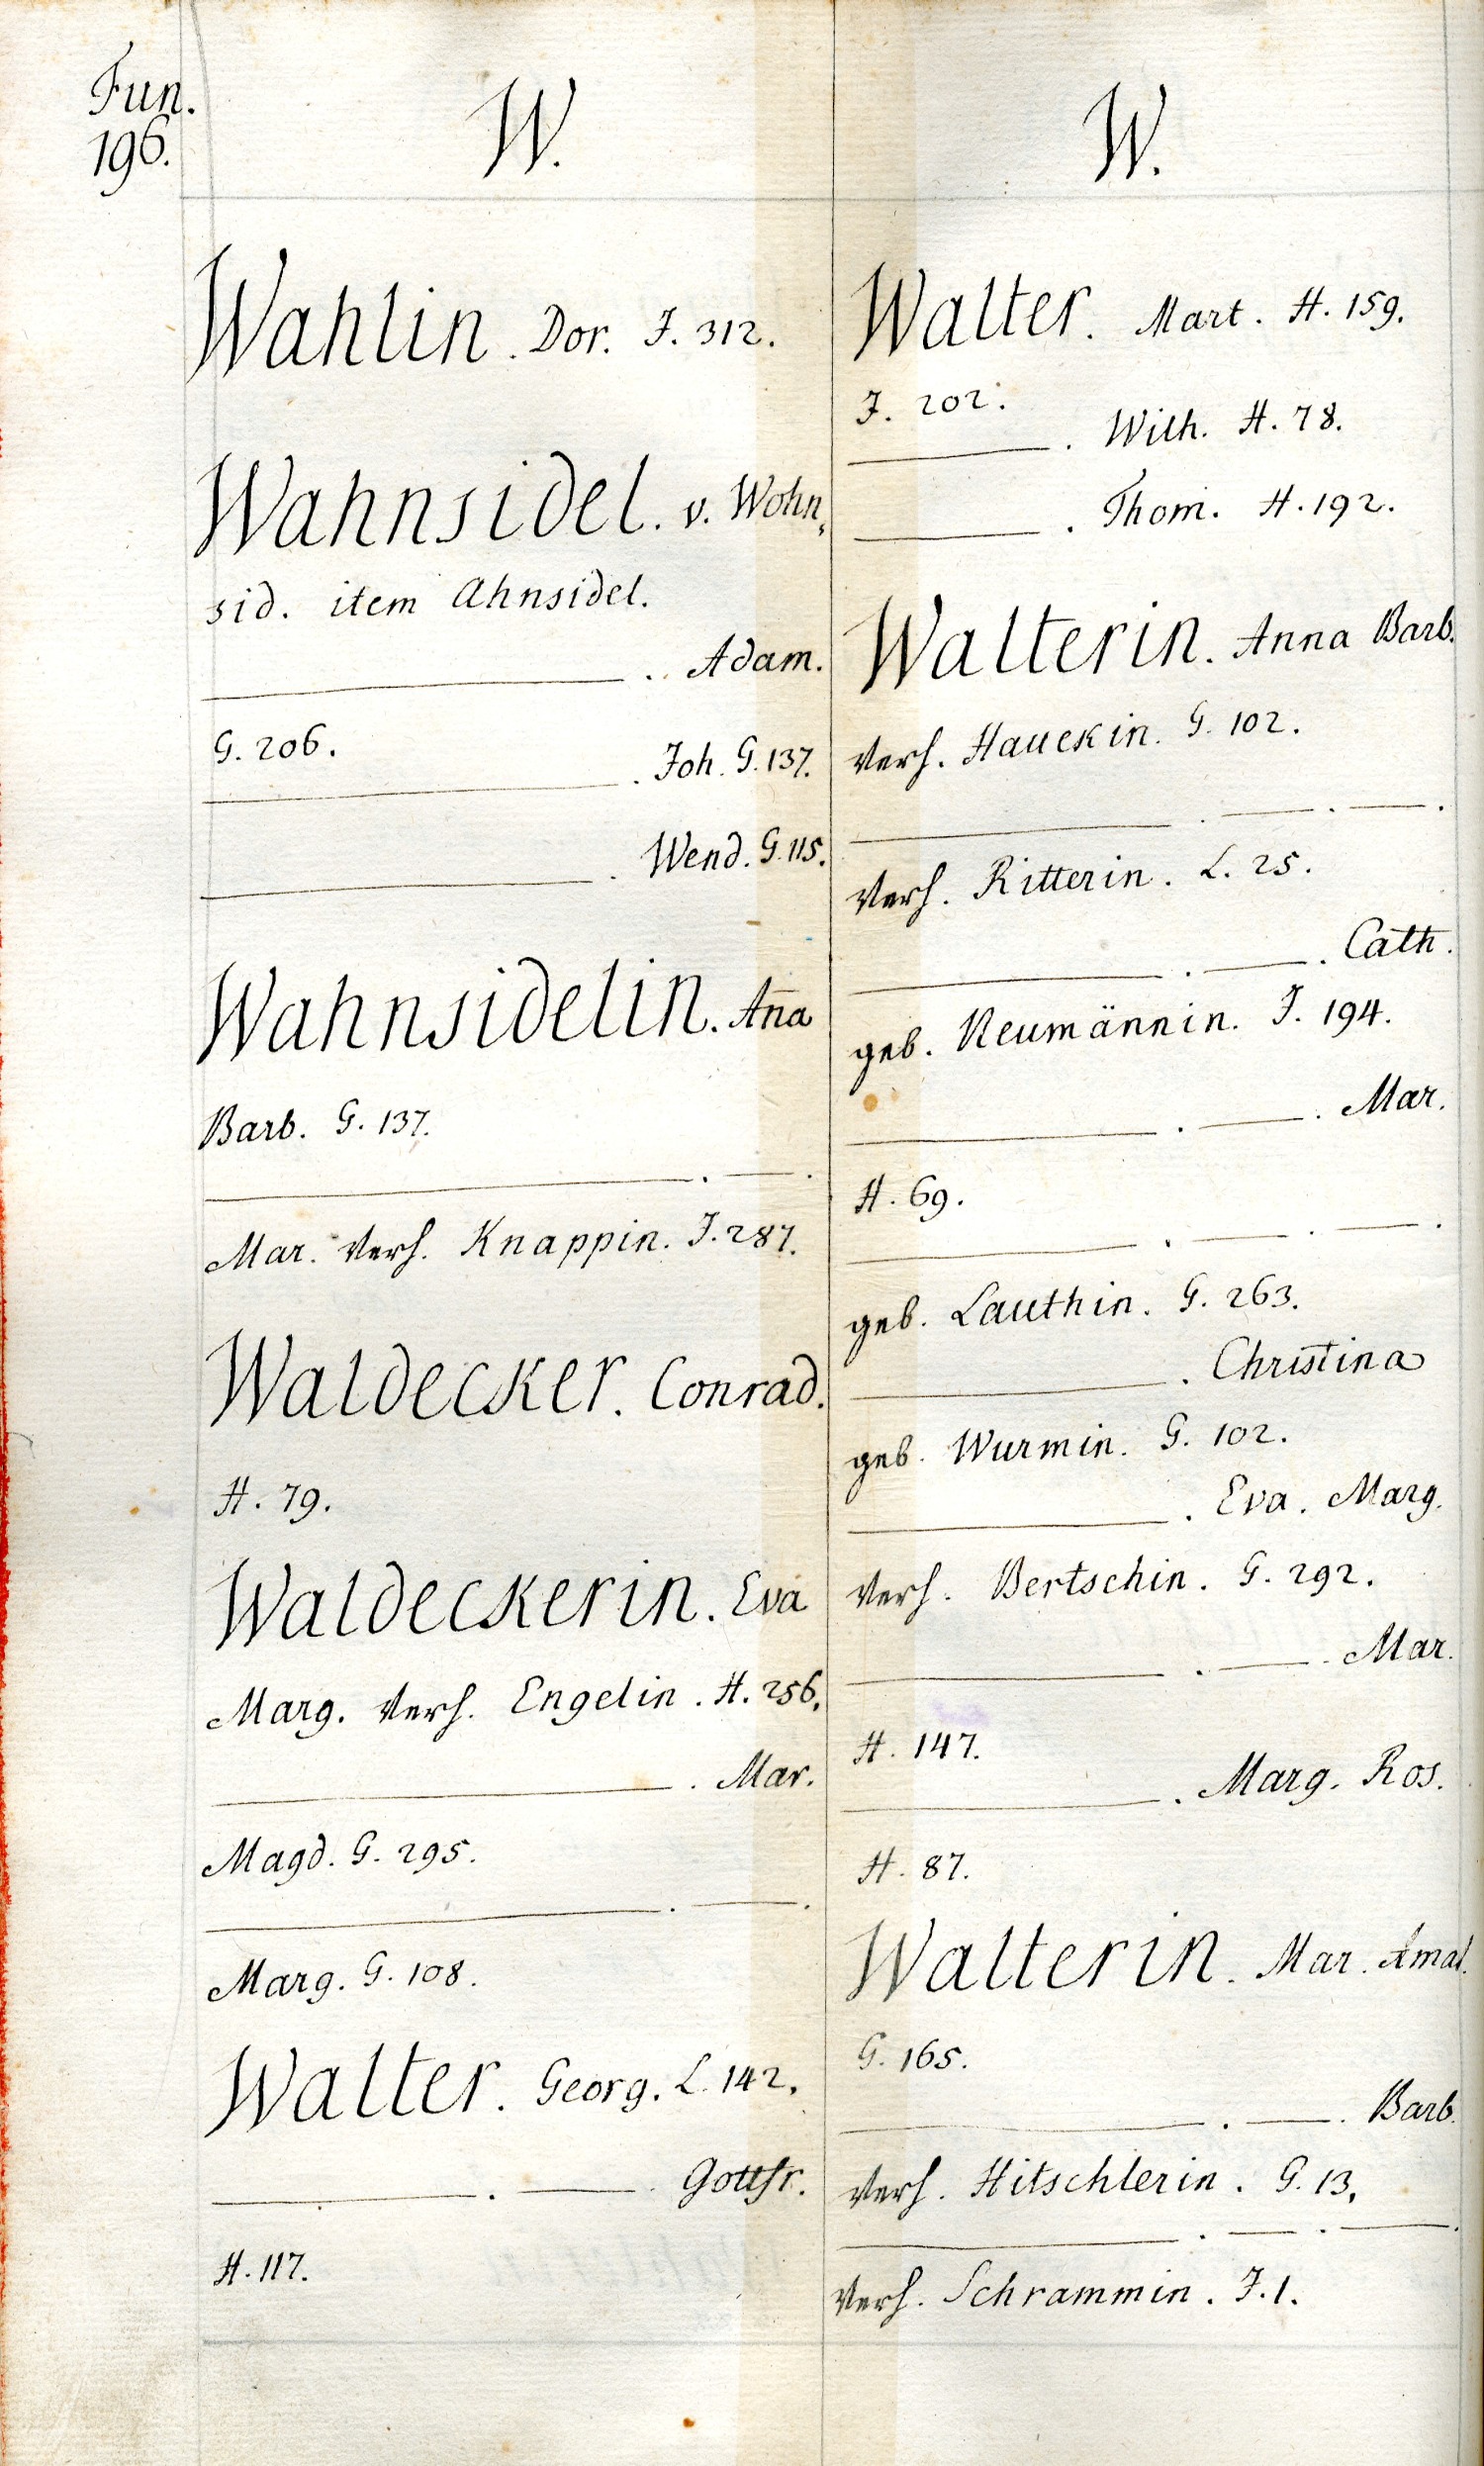 Fun.
196.
W.
Wahlin. Dor. J. 312.
Wahnsidel. v. Wohn,
sid. item Ahnsidel.
———. Adam.
G. 206.
———. Joh. G. 137.
———. Wend. G. 115.
Wahnsidelin. Aña
Barb. G. 137.
———. ——.
Mar. verh. Knappin. J. 287.
Waldecker. Conrad.
H. 79.
Waldeckerin. Eva
Marg. verh. Engelin. H. 256.
———. Mar.
Magd. G. 295.
———. ——.
Marg. G. 108.
Walter. Georg. L. 142.
———. ——. Gottfr.
H. 117.
W.
Walter. Mart. H. 159.
J. 202.
———. Wilh. H. 78.
———. Thom. H. 192.
Walterin. Anna Barb.
verh. Hauckin. G. 102.
———. ——. ——.
verh. Ritterin. L. 25.
———. ——. Cath.
geb. Neumännin. J. 194.
———. ——. Mar.
H. 69.
———. ——. ——.
geb. Lauthin. G. 263.
———. Christina
geb. Wurmin. G. 102.
———. Eva. Marg.
verh. Bertschin. G. 292.
———. ——. Mar.
H. 147.
———. Marg. Ros.
H. 87.
Walterin. Mar. Amal.
G. 165.
———. ——. Barb.
verh. Hitschlerin. G. 13.
———. ——. ——.
verh. Schrammin. J. 1.